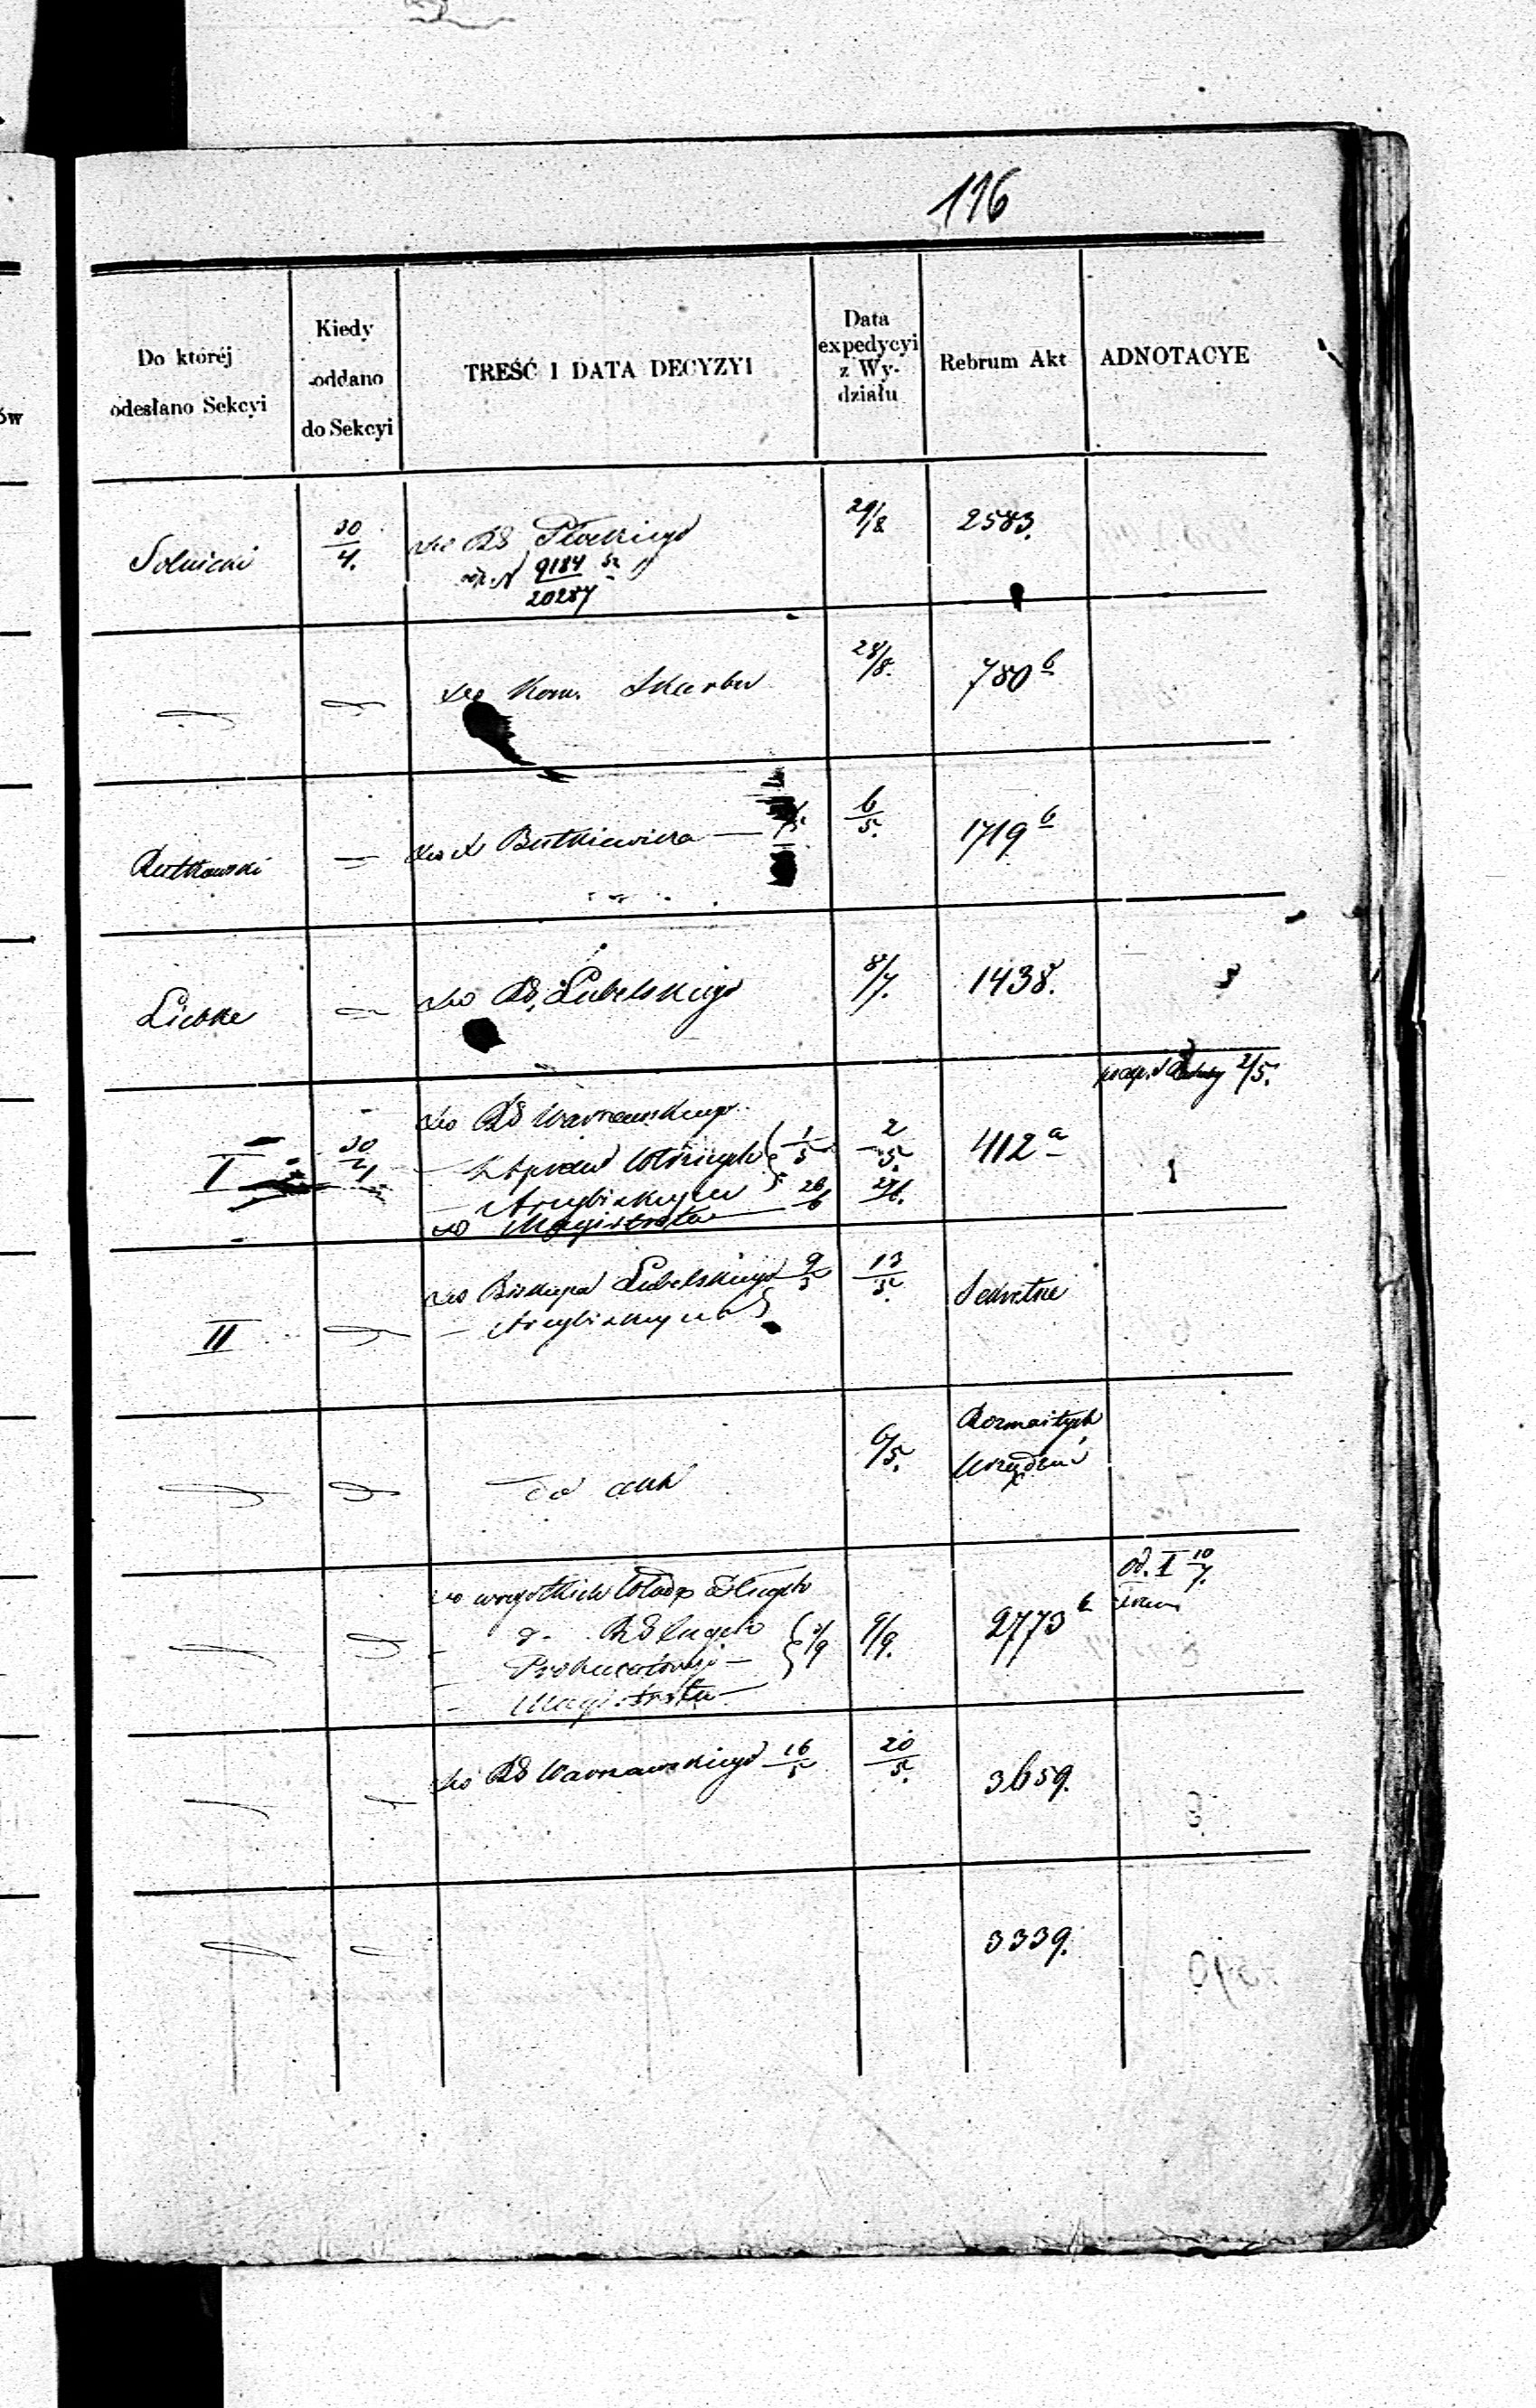 116
Do której
odesłano Sekcyi
Kiedy
oddano
do Sekcyi
TREŚĆ I DATA DECYZYI
Data
expedycyi
z Wy-
działu
Rebrum Akt
ADNOTACYE
ów
Solnicki
30/4.
do RG Płockiego
9184
20287
29/8
2583.
do Kom. Skarbu
28/8.
780 b
Rutkowski
do X Butkiewicza
6/5.
1719 b
Liebke
do RG. Lubelskiego
8/7.
1438.
I
30/4
do RG Warszawskiego
Arcybiskupa
do Magistratu
1/5
26/6
2/5.
27/6.
412 a
2/5.
II
do Biskupa Lubelskiego 9/5
— Arcybiskupa
13/5.
Sekretne
do akt
6/5.
Rozmaitych
Urządzeń
do wszystkich Władz
Prokuratoryi —
— Magistratu —
9/9.
2773 b
od. I 10/7.
do RG Warszawskiego 16/5
20/5.
3659.
3339.